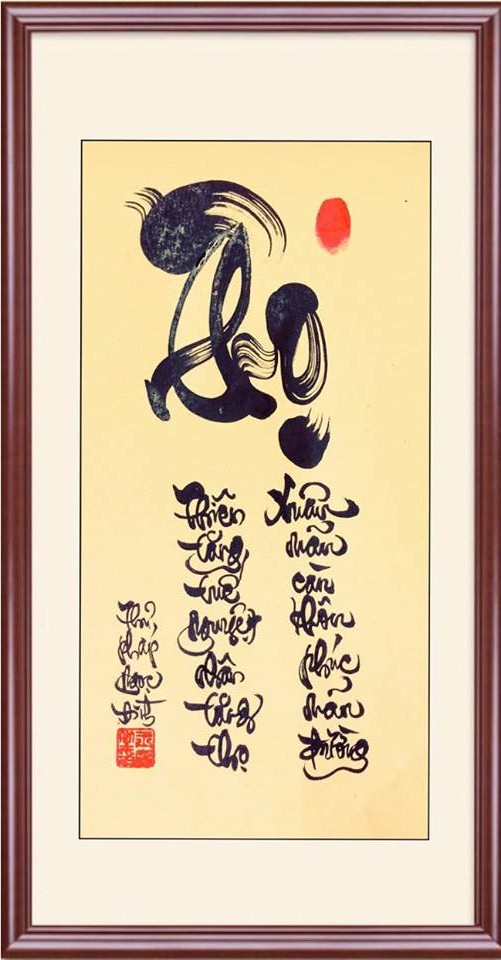 Thọ
Thiên tăng tuế nguyệt nhân tăng thọ
Xuân mãn càn khôn phúc mãn đường
Thư pháp Ngọc